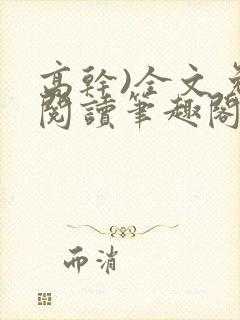 高幹)全文免
閱讀筆趣閣
而消